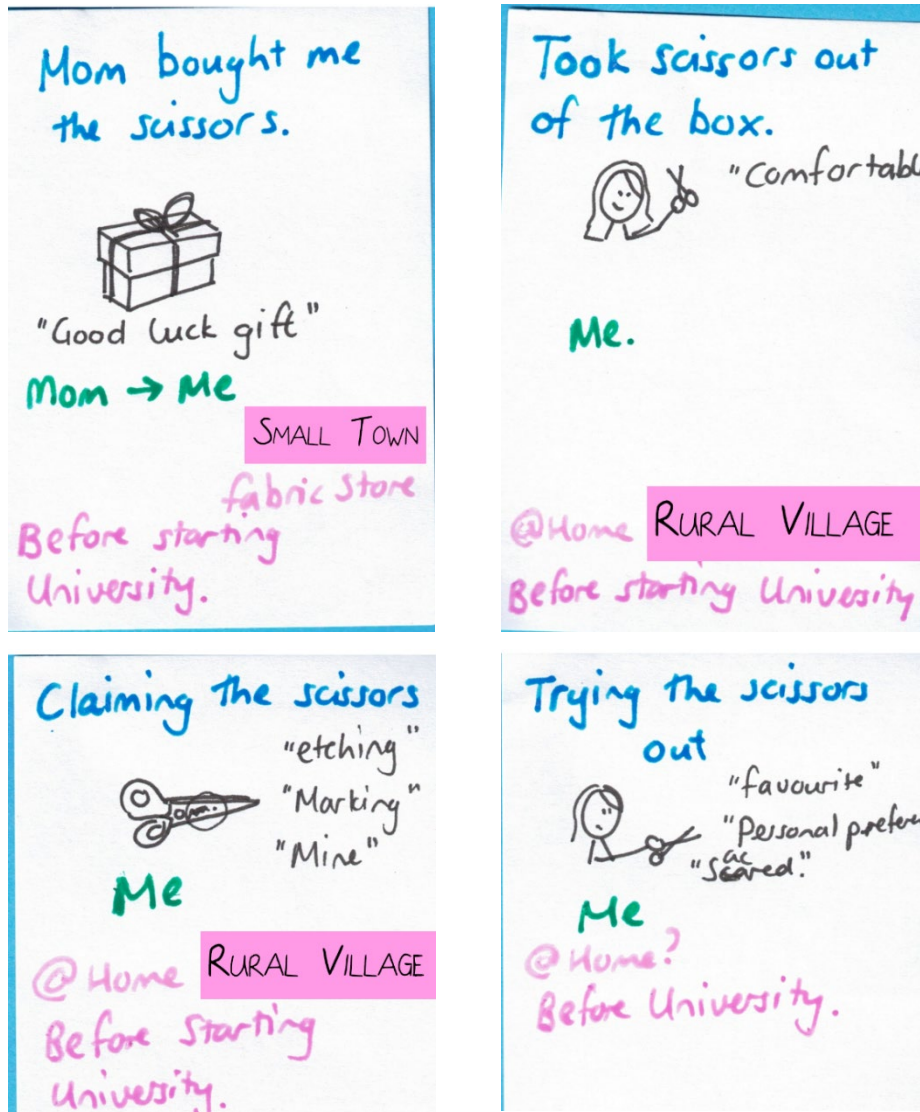 Mom bought me
the scissors.
"Good luck gift"
Mom → Me
SMALL TOWN
fabric store
Before starting
University.
Took scissors out
of the box.
"Comfortabl
Me.
@Home RURAL VILLAGE
Before starting University
Claiming the scissors
"etching"
"Marking"
"Mine"
Me
@Home RURAL VILLAGE
Before Starting
University.
Trying the scissors
out
"favourite"
"Personal prefere
"Sacred."
Me
@Home?
Before University.